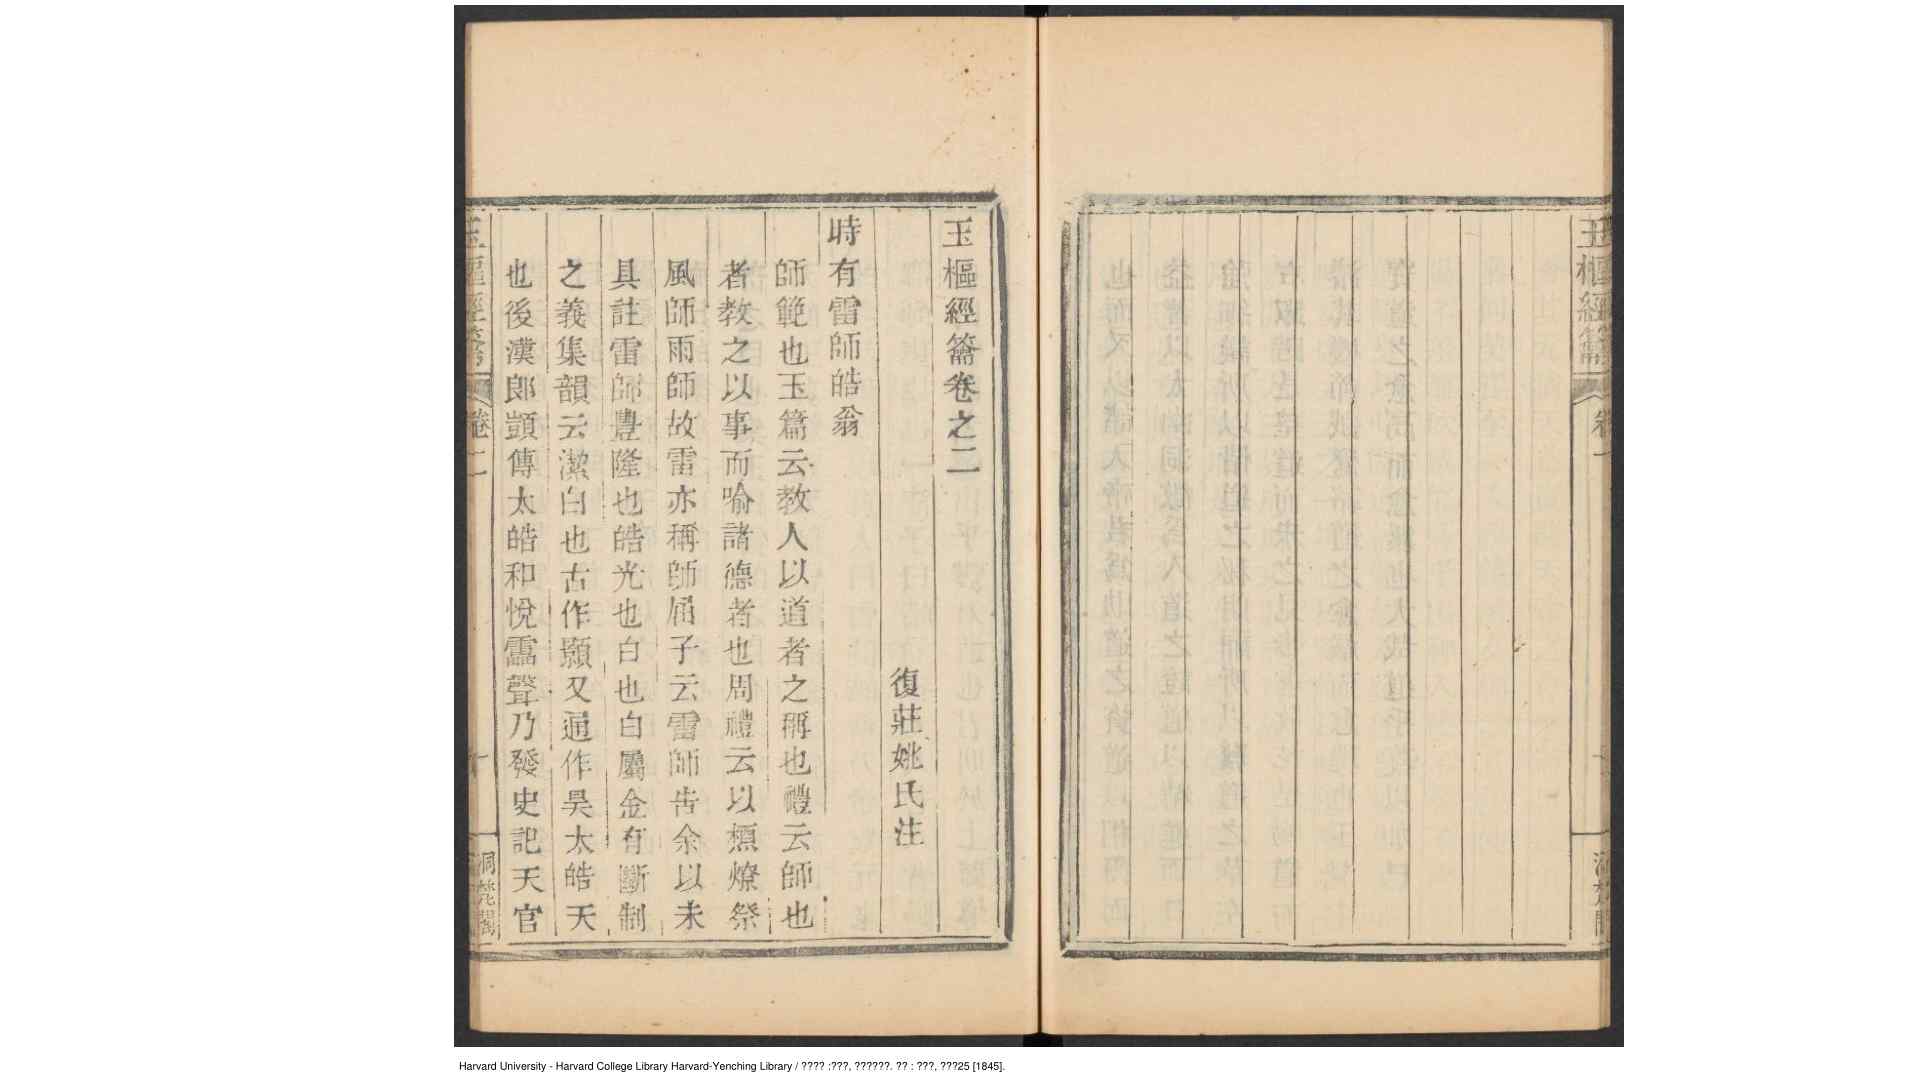 玉樞經籥
玉樞經籥卷之二
復莊姚氏注
時有雷師皓翁
師範也玉篇云教人以道者之稱也禮云師也
者教之以事而喻諸德者也周禮云以槱燎祭
風師雨師故雷亦稱師屈子云雷師告余以未
具註雷師豐隆也皓光也白也白屬金有斷制
之義集韻云潔白也古作顥又通作昊太皓天
也後漢郎顗傳太皓和悅靁聲乃發史記天官
玉樞經籥
卷二
洞梵閣
Harvard University - Harvard College Library Harvard-Yenching Library / ???? :???, ??????. ?? : ???, ???25 [1845].